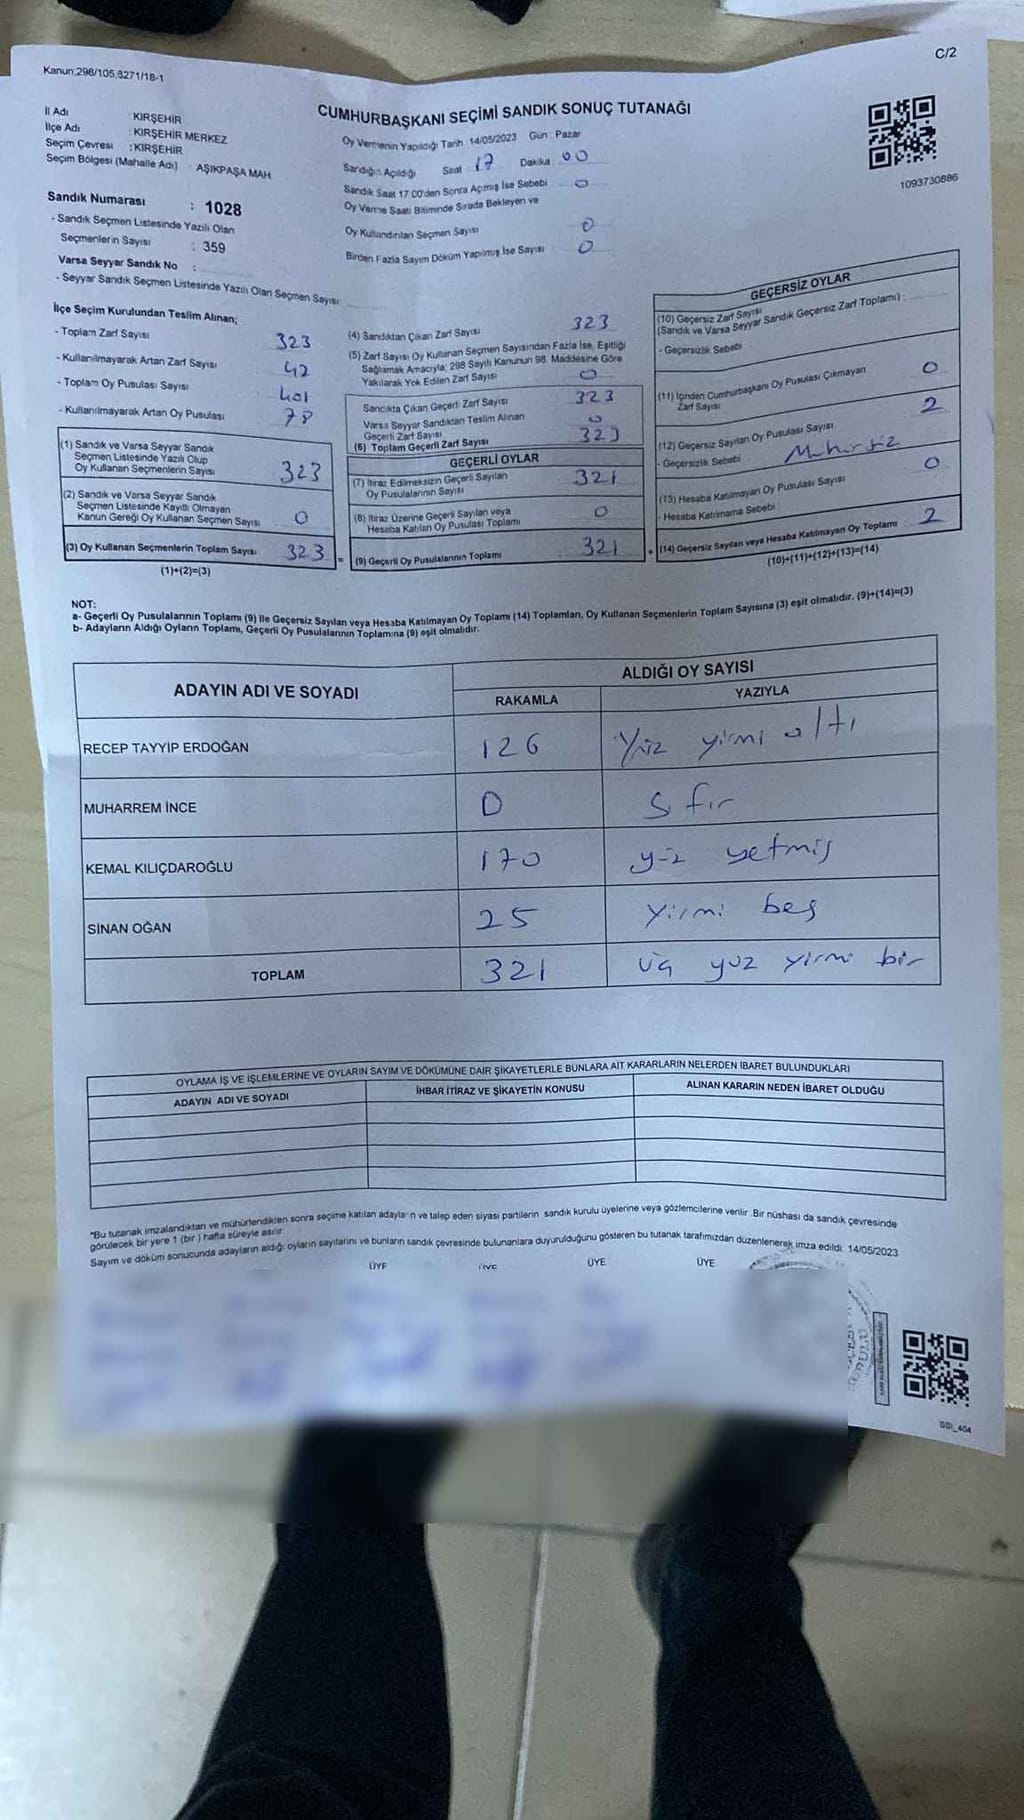 Kanun:298/105,6271/18-1
C/2
CUMHURBAŞKANI SEÇİMİ SANDIK SONUÇ TUTANAĞI
İl Adı : KIRŞEHİR
İlçe Adı : KIRŞEHİR MERKEZ
Seçim Çevresi : KIRŞEHİR
Seçim Bölgesi (Mahalle Adı) AŞIKPAŞA MAH
Oy Vermenin Yapıldığı Tarih 14/05/2023 Gün Pazar
Sandığın Açıldığı Saat 17 Dakika 00
Sandık Saat 17 00'den Sonra Açılmış İse Sebebi 0
Oy Verme Saati Bitiminde Sırada Bekleyen ve
Oy Kullandırılan Seçmen Sayısı 0
Birden Fazla Sayım Döküm Yapılmış İse Sayısı 0
1093730886
Sandık Numarası : 1028
- Sandık Seçmen Listesinde Yazılı Olan
Seçmenlerin Sayısı : 359
Varsa Seyyar Sandık No :
- Seyyar Sandık Seçmen Listesinde Yazılı Olan Seçmen Sayısı
İlçe Seçim Kurulundan Teslim Alınan;
- Toplam Zarf Sayısı 323
- Kullanılmayarak Artan Zarf Sayısı 42
- Toplam Oy Pusulası Sayısı 401
- Kullanılmayarak Artan Oy Pusulası 78
(1) Sandık ve Varsa Seyyar Sandık
Seçmen Listesinde Yazılı Olup
Oy Kullanan Seçmenlerin Sayısı 323
(2) Sandık ve Varsa Seyyar Sandık
Seçmen Listesinde Kayıtlı Olmayan
Kanun Gereği Oy Kullanan Seçmen Sayısı 0
(3) Oy Kullanan Seçmenlerin Toplam Sayısı 323 =
(1)+(2)=(3)
(4) Sandıktan Çıkan Zarf Sayısı 323
(5) Zarf Sayısı Oy Kullanan Seçmen Sayısından Fazla İse, Eşitliği
Sağlamak Amacıyla; 298 Sayılı Kanunun 98. Maddesine Göre
Yakılarak Yok Edilen Zarf Sayısı 0
Sandıkta Çıkan Geçerli Zarf Sayısı 323
Varsa Seyyar Sandıktan Teslim Alınan
Geçerli Zarf Sayısı 0
(6) Toplam Geçerli Zarf Sayısı 323
GEÇERLİ OYLAR
(7) İtiraz Edilmeksizin Geçerli Sayılan
Oy Pusulalarının Sayısı 321
(8) İtiraz Üzerine Geçerli Sayılan veya
Hesaba Katılan Oy Pusulası Toplamı 0
(9) Geçerli Oy Pusulalarının Toplamı 321 +
GEÇERSİZ OYLAR
(10) Geçersiz Zarf Sayısı
(Sandık ve Varsa Seyyar Sandık Geçersiz Zarf Toplamı) :
- Geçersizlik Sebebi
(11) İçinden Cumhurbaşkanı Oy Pusulası Çıkmayan 0
Zarf Sayısı
(12) Geçersiz Sayılan Oy Pusulası Sayısı 2
- Geçersizlik Sebebi Mühürsüz
(13) Hesaba Katılmayan Oy Pusulası Sayısı 0
- Hesaba Katılmama Sebebi
(14) Geçersiz Sayılan veya Hesaba Katılmayan Oy Toplamı 2
(10)+(11)+(12)+(13)=(14)
NOT:
a- Geçerli Oy Pusulalarının Toplamı (9) ile Geçersiz Sayılan veya Hesaba Katılmayan Oy Toplamı (14) Toplamları, Oy Kullanan Seçmenlerin Toplam Sayısına (3) eşit olmalıdır. (9)+(14)=(3)
b- Adayların Aldığı Oyların Toplamı, Geçerli Oy Pusulalarının Toplamına (9) eşit olmalıdır.
ADAYIN ADI VE SOYADI ALDIĞI OY SAYISI
RAKAMLA YAZIYLA
RECEP TAYYİP ERDOĞAN 126 Yüz yirmi altı
MUHARREM İNCE 0 sıfır
KEMAL KILIÇDAROĞLU 170 yüz yetmiş
SİNAN OĞAN 25 Yirmi beş
TOPLAM 321 üç yüz yirmi bir
OYLAMA İŞ VE İŞLEMLERİNE VE OYLARIN SAYIM VE DÖKÜMÜNE DAİR ŞİKAYETLERLE BUNLARA AİT KARARLARIN NELERDEN İBARET BULUNDUKLARI
ADAYIN ADI VE SOYADI İHBAR İTİRAZ VE ŞİKAYETİN KONUSU ALINAN KARARIN NEDEN İBARET OLDUĞU
*Bu tutanak imzalandıktan ve mühürlendikten sonra seçime katılan adayların ve talep eden siyasi partilerin sandık kurulu üyelerine veya gözlemcilerine verilir. Bir nüshası da sandık çevresinde
görülecek bir yere 1 (bir ) hafta süreyle asılır.
Sayım ve döküm sonucunda adayların aldığı oyların sayılarını ve bunların sandık çevresinde bulunanlara duyurulduğunu gösteren bu tutanak tarafımızdan düzenlenerek imza edildi. 14/05/2023
ÜYE ÜYE ÜYE ÜYE
SSI_404